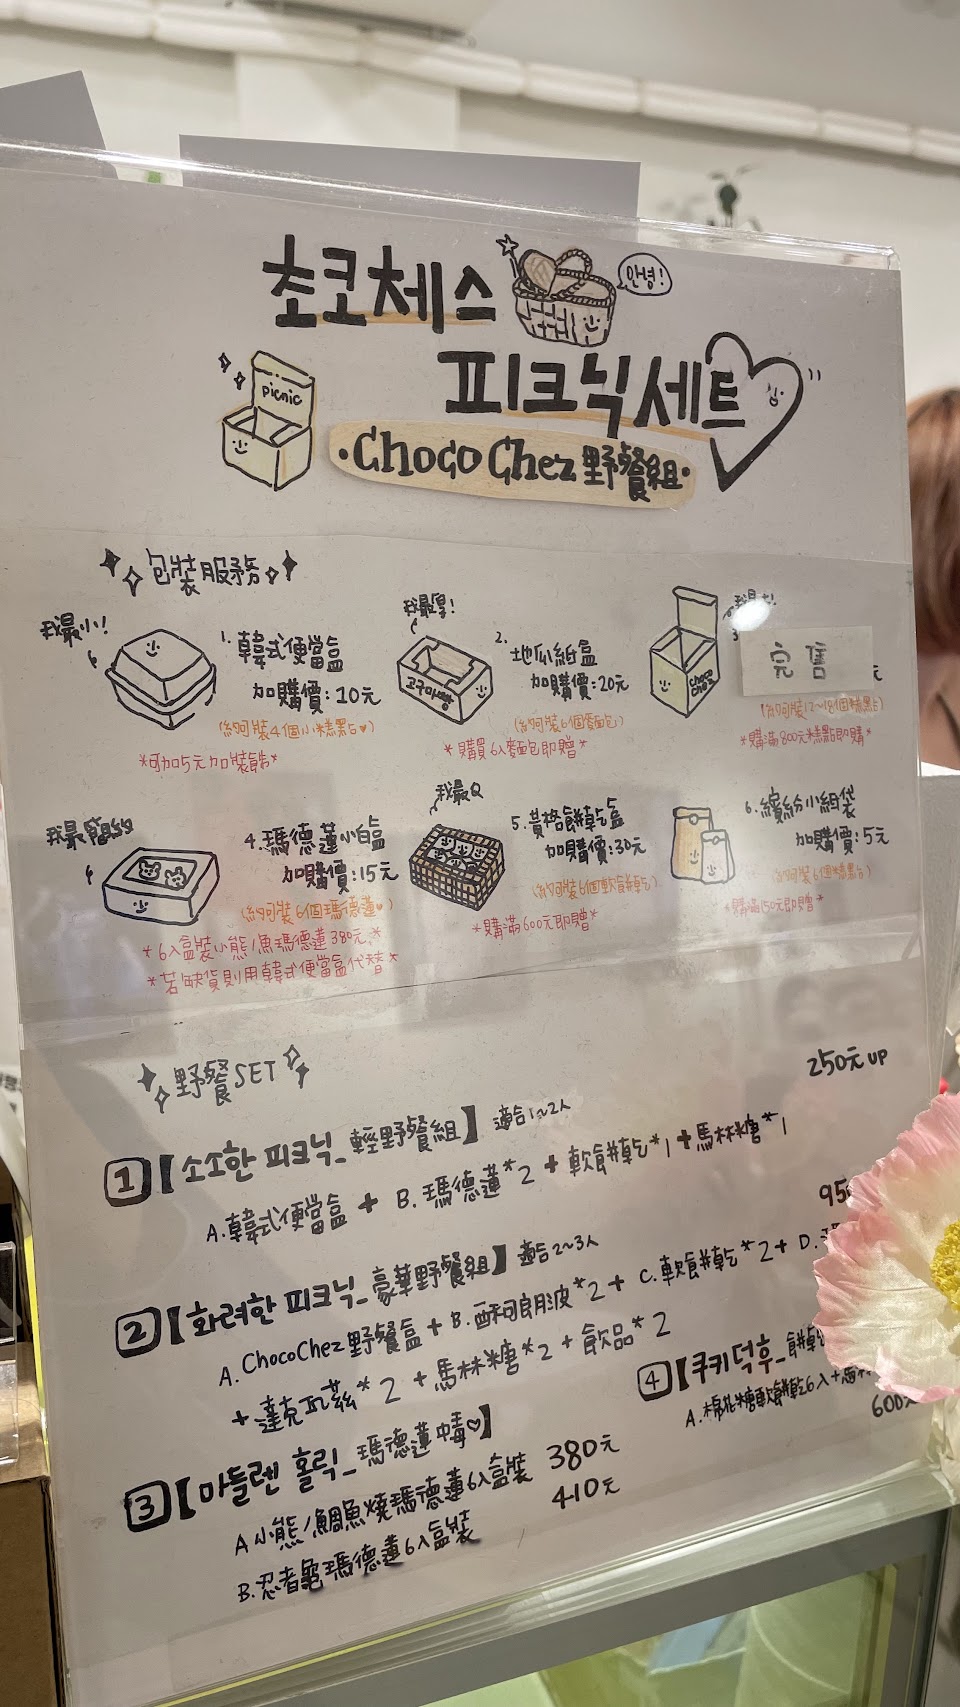 초코체스
안녕!
피크닉세트
picnic
·Choco Chez 野餐組·
包裝服務
我最小!
1. 韓式便當盒
加購價:10元
(約可裝4個小糕點♥)
*可加5元加裝飾*
我最厚!
고구마빵
2. 地瓜紙盒
加購價:20元
(約可裝6個麵包)
*購買6入麵包即贈*
choco chez
完售
元
(約可裝12~18個糕點)
*購滿800元糕點即購*
我最簡約
4. 瑪德蓮小白盒
加購價:15元
(約可裝6個瑪德蓮♥)
*6入盒裝小熊/魚瑪德蓮380元*
*若缺貨則用韓式便當盒代替*
我最Q
5. 黃格餅乾盒
加購價:30元
(約可裝6個軟餅乾)
*購滿600元即贈*
6. 繽紛小紙袋
加購價:5元
(約可裝6個糕點)
*購滿150元即贈*
野餐SET
250元UP
1【소소한 피크닉_輕野餐組】適合1~2人
A.韓式便當盒 + B.瑪德蓮*2 + 軟餅乾*1 + 馬林糖*1
2【화려한 피크닉_豪華野餐組】適合2~3人
A. ChocoChez野餐盒 + B.酥可朗波*2 + C.軟餅乾*2 + D.
+ 達克瓦茲*2 + 馬林糖*2 + 飲品*2
3【마들렌 홀릭_瑪德蓮中毒♡】
A 小熊/鯛魚燒瑪德蓮6入盒裝 380元
B.忍者龜瑪德蓮6入盒裝 410元
4【쿠키덕후_餅乾
A.棉花糖軟餅乾6入+
600元